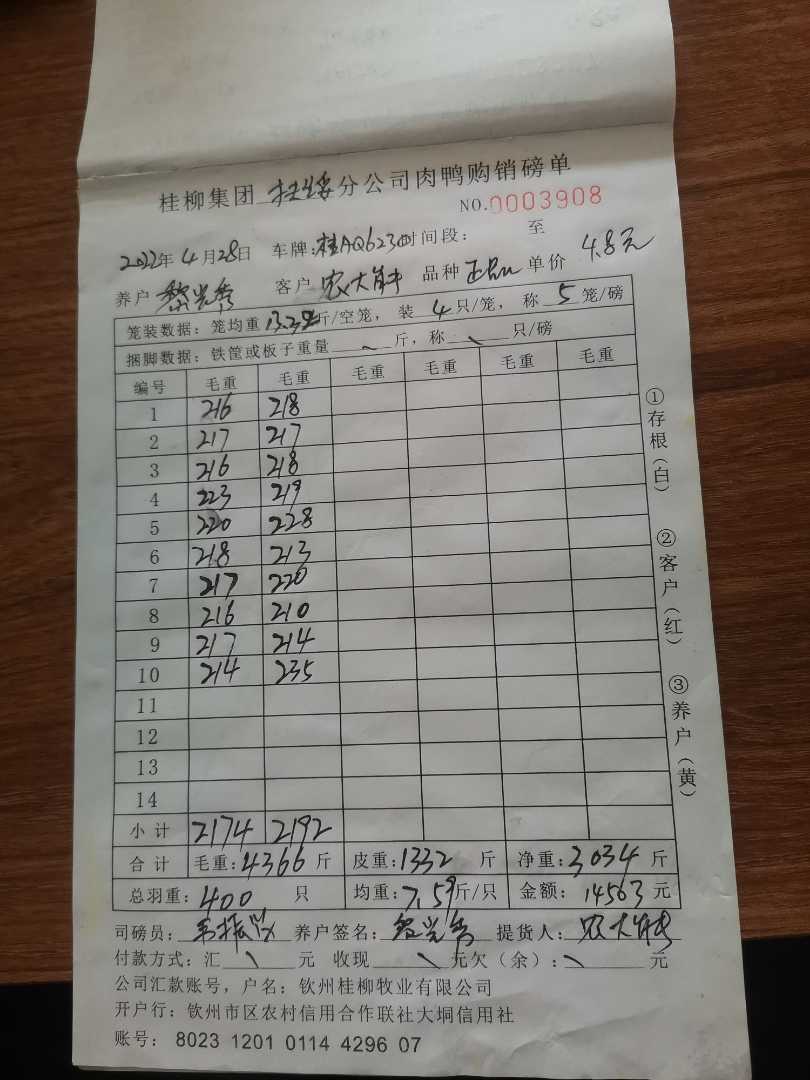 桂柳集团 扶绥 分公司肉鸭购销磅单
NO.0003908
2022年 4月28日 车牌:桂AQ623 时间段: 至
养户 黎光秀 客户 农大 品种 正品 单价 4.8元
笼装数据:笼均重 13.32斤/空笼, 装 4 只/笼, 称 5 笼/磅
捆脚数据:铁筐或板子重量 斤,称 只/磅
编号 毛重 毛重 毛重 毛重 毛重 毛重
1 216 218
2 217 217
3 216 218
4 223 219
5 220 228
6 218 213
7 217 220
8 216 210
9 217 214
10 214 235
11
12
13
14
小计 2174 2192
合计 毛重:4366 斤 皮重:1332 斤 净重:3034 斤
总羽重:400 只 均重:7.59斤/只 金额:14563元
司磅员: 养户签名:黎光秀 提货人:农大
付款方式:汇 \ 元 收现 \ 元欠(余):\ 元
公司汇款账号,户名:钦州桂柳牧业有限公司
开户行:钦州市区农村信用合作联社大垌信用社
账号: 8023 1201 0114 4296 07
①存根(白)
②客户(红)
③养户(黄)